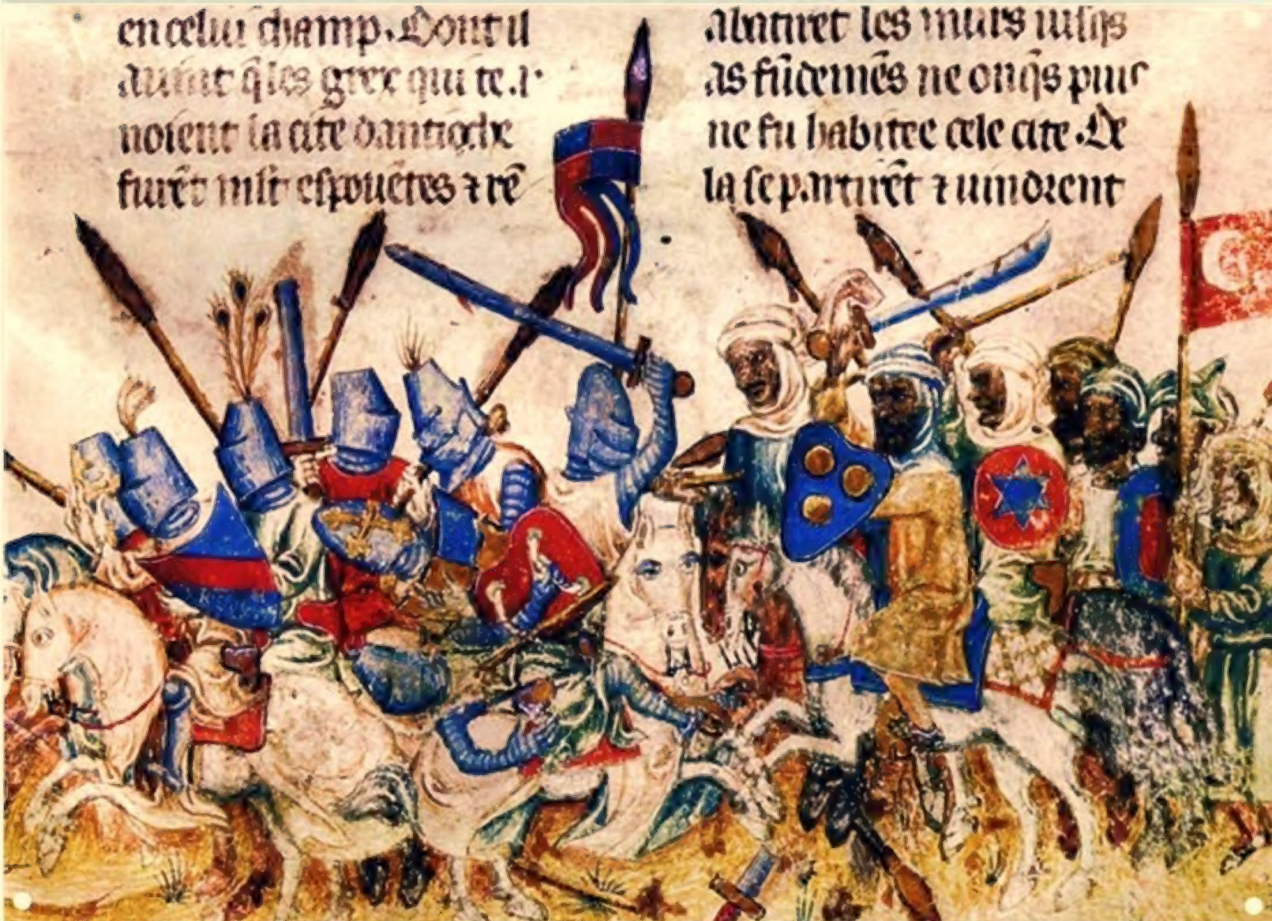 en celui champ. Dont il
auint q̃ les grex qui te.r
noient la cite dantioche
furẽt mlt espouẽtes ⁊ rẽ
abatiret les murs iusqs
as fũdemẽs ne onq̃s puis
ne fu habitee cele cite. De
la se partirẽt ⁊ uindrent